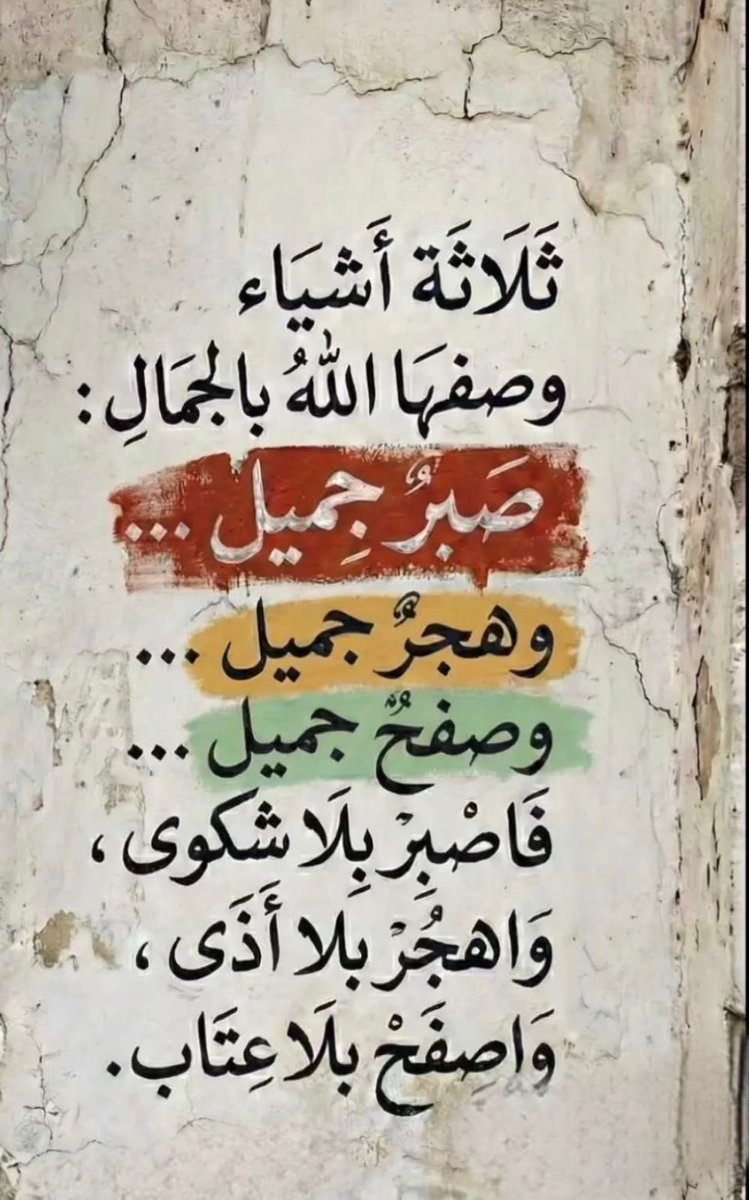 ثَلَاثَة أَشيَاء
وصفهَا اللهُ بالجمَالِ :
صَبرٌ جِميل ...
وهجرٌ جميل ...
وصفحٌ جميل ...
فَاصْبِرْ بِلَا شكوى ،
وَاهجُرْ بلا أَذَى ،
وَاصِفَحْ بلَا عِتَاب .